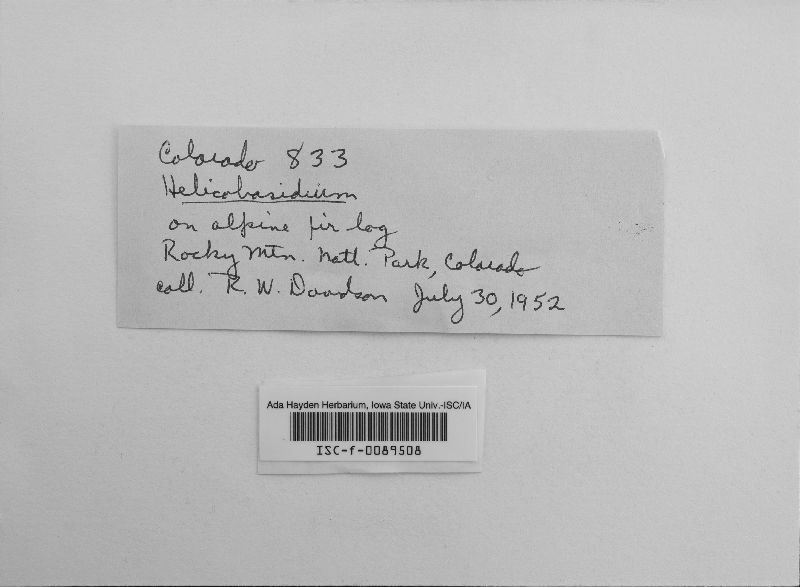 Colorado 833
Helicobasidium
on alpine fir log
Rocky Mtn. Natl. Park, Colorado
coll. R. W. Davidson July 30, 1952
Ada Hayden Herbarium, Iowa State Univ.-ISC/IA
ISC-f-0089508